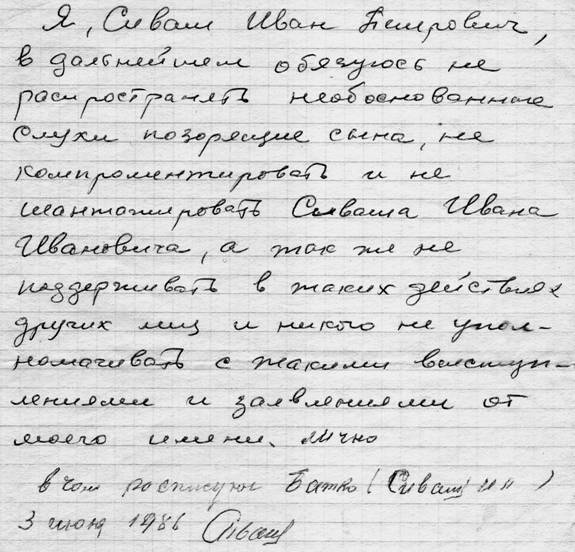 Я, Сиваш Иван Петрович,
в дальнейшем обязуюсь не
распространять необоснованные
слухи позорящие сына, не
компроментировать и не
шантажировать Сиваша Ивана
Ивановича, а так же не
поддерживать в таких действиях
других лиц и никого не упол-
номачивать с такими выступ-
лениями и заявлениями от
моего имени. лично
в чом росписуюс Батко (Сиваш ИП)
3 июня 1986 Сиваш